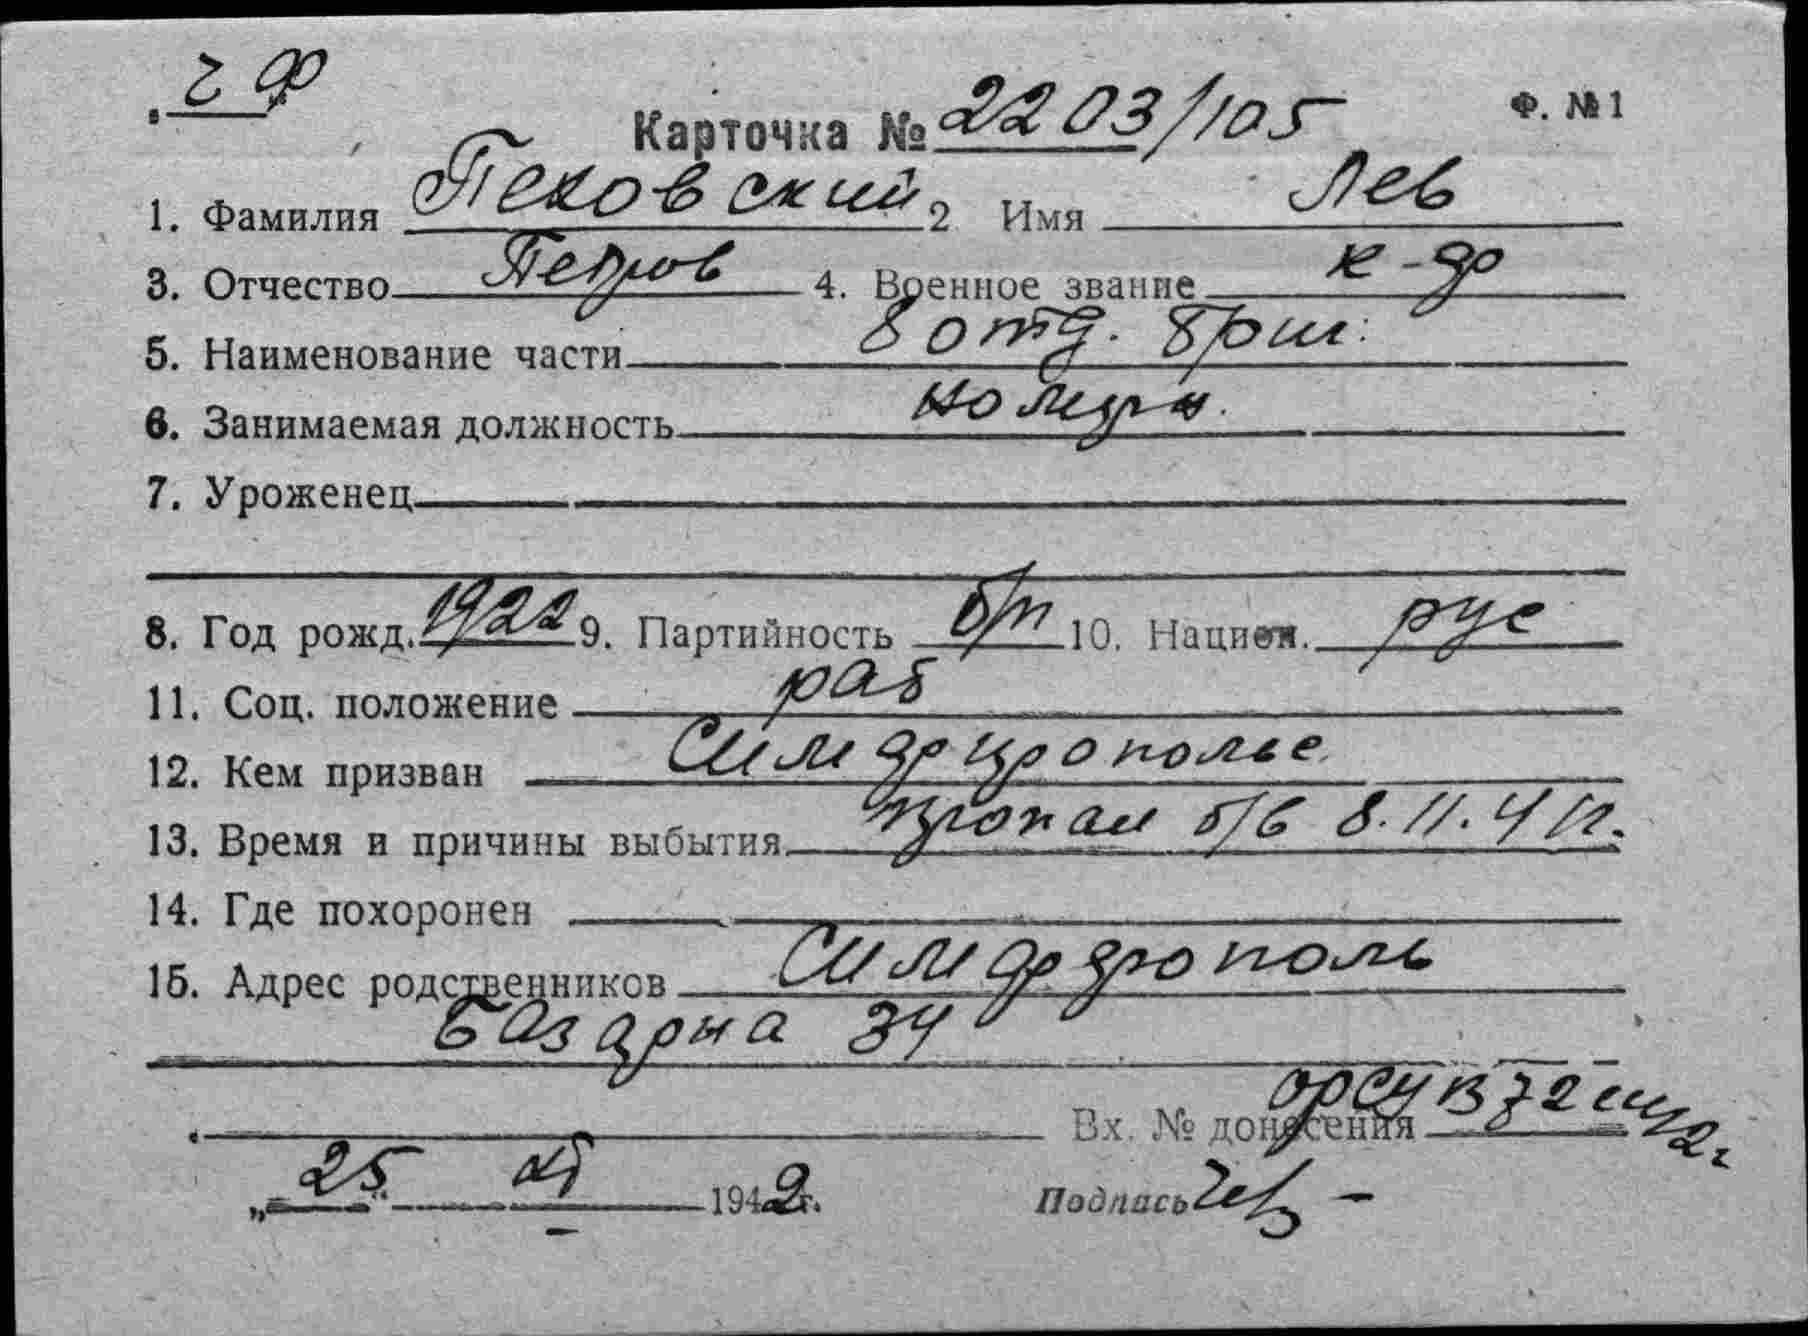 ч Ф
Карточка № 2203/105 Ф. № 1
1. Фамилия Пеховский 2 Имя Лев
3. Отчество Петров 4. Военное звание к-ф
5. Наименование части 8 отд. бриг.
6. Занимаемая должность
7. Уроженец
8. Год рожд. 1922 9. Партийность б/п 10. Национ. рус
11. Соц. положение раб
12. Кем призван Симферополье
13. Время и причины выбытия пропал б/в 8.11.41г.
14. Где похоронен
15. Адрес родственников Симферополь
Базарна 34
Вх. № донесения
„25 1942г. Подпись